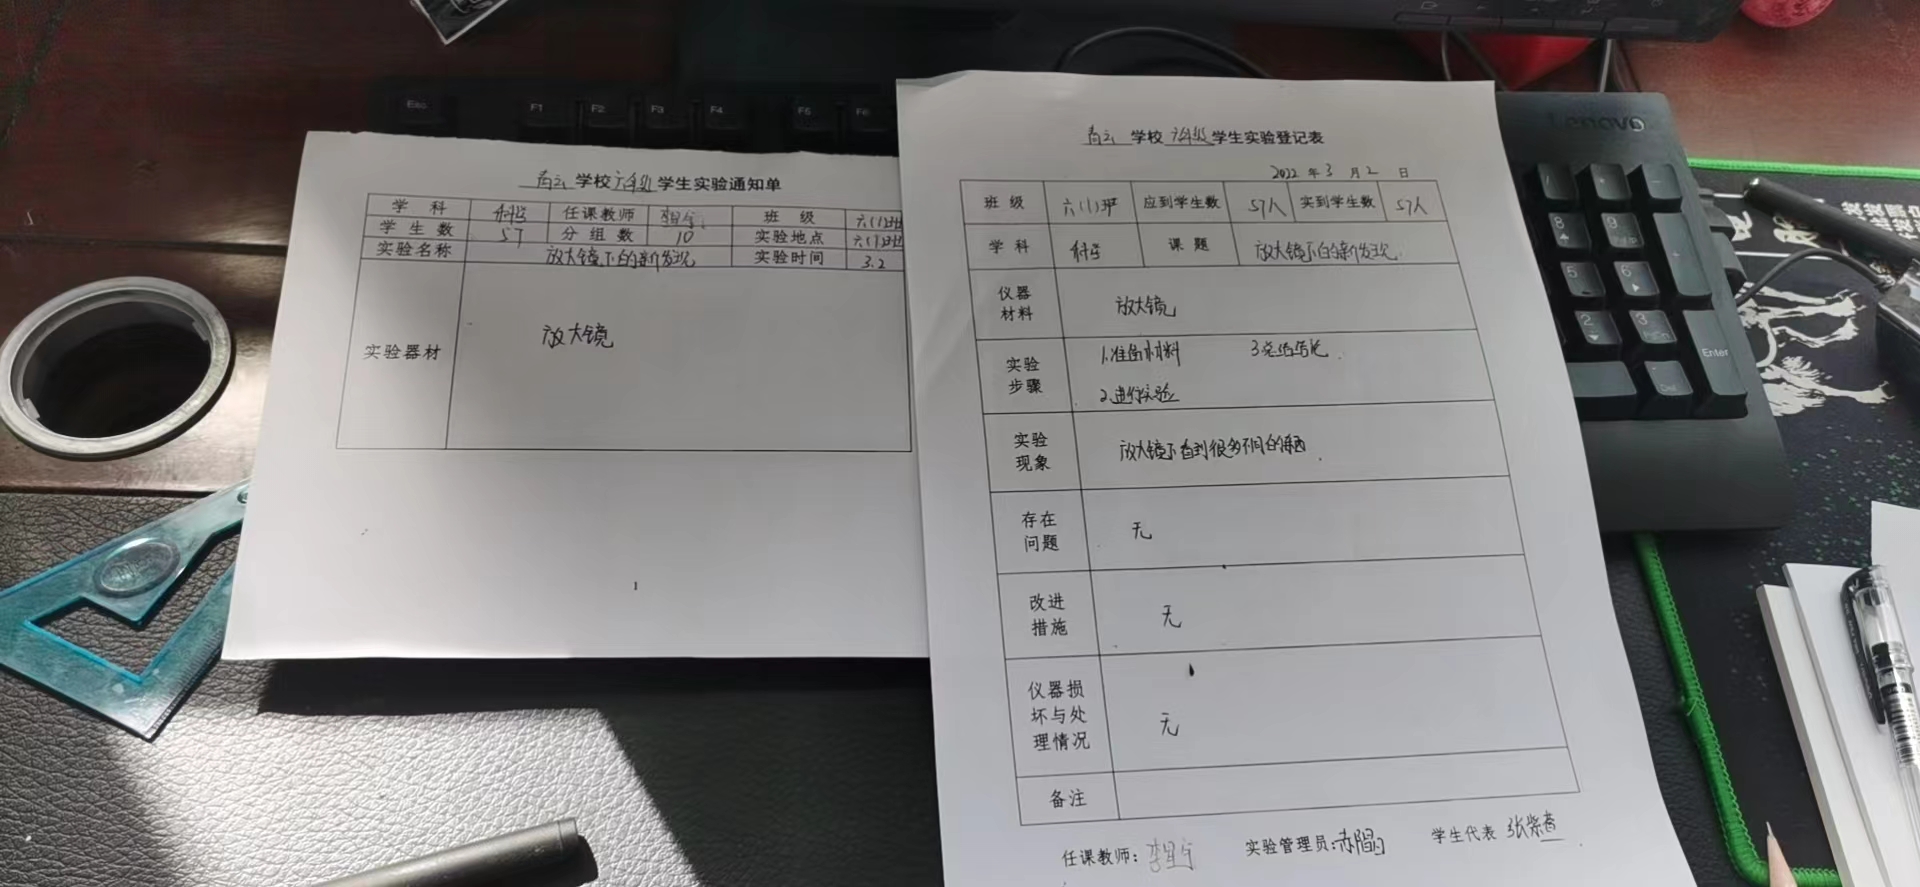 学校六年级学生实验通知单
学科 科学 任课教师 班级 六(1)班
学生数 57 分组数 10 实验地点 六(1)班
实验名称 放大镜下的新发现 实验时间 3.2
实验器材 放大镜
1
学校六年级学生实验登记表
2022年3月2日
班级 六(1)班 应到学生数 57人 实到学生数 57人
学科 科学 课题 放大镜下的新发现
仪器材料 放大镜
实验步骤 1.准备材料 3.总结结论.
2.进行实验
实验现象 放大镜下看到很多不同的东西.
存在问题 无
改进措施 无
仪器损坏与处理情况 无
备注
任课教师: 实验管理员: 学生代表 张紫萱
Esc F1 F2 F3 F4 F5 F6
Lenovo
8 9
5 6
2 3
Enter
Del